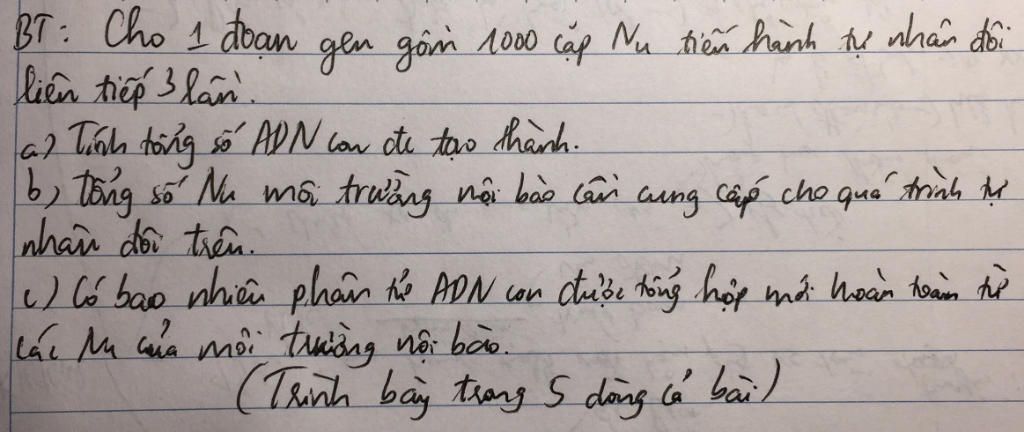 BT: Cho 1 đoạn gen gồm 1000 cặp Nu tiến hành tự nhân đôi
liên tiếp 3 lần.
a) Tính tổng số ADN con đc tạo thành.
b) Tổng số Nu môi trường nội bào cần cung cấp cho quá trình tự
nhân đôi trên.
c) Có bao nhiêu phân tử ADN con được tổng hợp mới hoàn toàn từ
các Nu của môi trường nội bào.
(Trình bày trong 5 dòng cả bài)